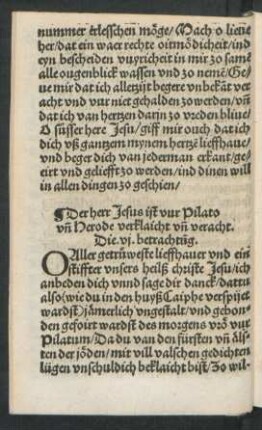 nummer erlesschen möge/ Mach o lieue
her/ dat ein waer rechte oitmödicheit/ ind
eyn bescheiden vuyricheit in mir zo samē
alle ougenblick wassen vnd zo nemē/ Ge
ue mir dat ich alletzijt begere vnbekāt ver
acht vnd vur niet gehalden zo werden/ vñ
dat ich van hertzen darin zo vreden bliue/
O süsser here Jesu/ giff mir ouch dat ich
dich vß gantzem mynem hertzē lieffhaue/
vnd beger dich van jederman erkant/ ge-
eirt vnd geliefft zo werden/ ind dinen will
in allen dingen zo geschien/
¶ Der herr Jesus ist vur Pilato
vñ Herode verklaicht vñ veracht.
Die. vj. betrachtūg.
O Aller getrüweste lieffhauer vnd ein
stiffter vnsers heilß christe Jesu/ ich
anbeden dich vnnd sage dir danck/ dattu
also (wie du in den huyß Caiphe verspijet
wardst) jämerlich vngestalt/ vnd gebon-
den gefoirt wardst des morgens vro vur
Pilatum/ Da du van den fürsten vñ äls-
ten der jöden/ mir vill valschen gedichten
lügen vnschuldich beklaicht bist/ Zo wil-